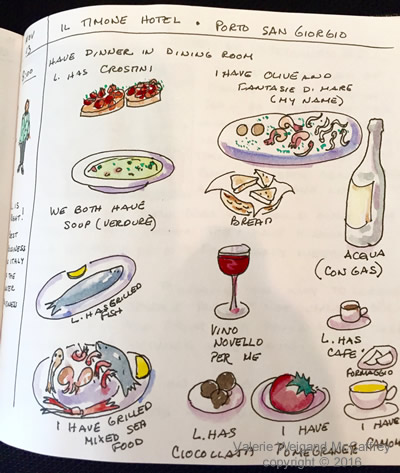 IL TIMONE HOTEL • PORTO SAN GIORGIO
HAVE DINNER IN DINING ROOM
L. HAS CROSTINI
I HAVE OLIVE AND
FANTASIE DI MARE
(MY NAME)
WE BOTH HAVE
SOUP (VERDURE)
BREAD
ACQUA
(CON GAS)
L. HAS GRILLED
FISH
VINO
NOVELLO
PER ME
L. HAS
CAFE
FORMAGGIO
I HAVE GRILLED
MIXED SEA
FOOD
L. HAS
CIOCOLLATTI
I HAVE
POMEGRANER
I HAVE
Valerie Weigand McGarney
copyright © 2016